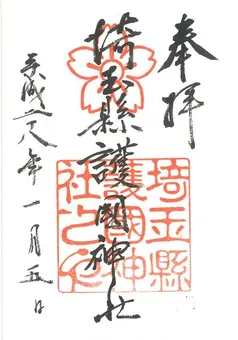 奉拝
埼玉縣護國神社
平成二八年一月五日
埼玉縣
護國神
社之印